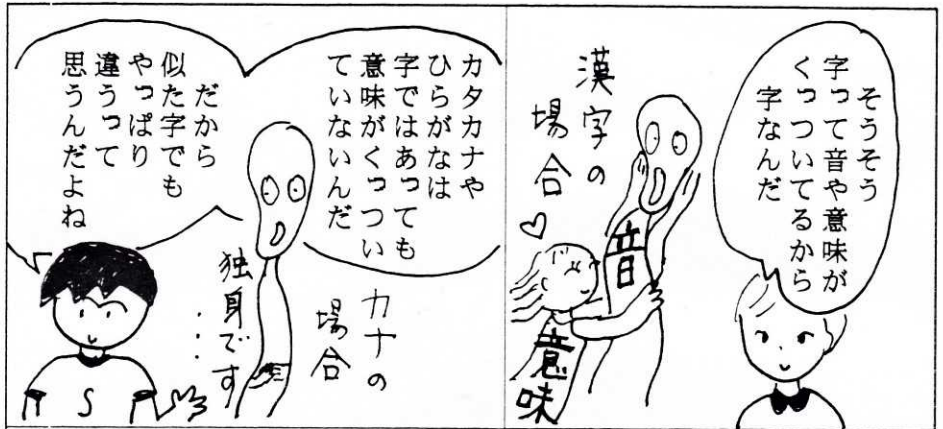 そうそう
字って音や意味が
くっついてるから
字なんだ
漢字の
場合♡
音
意味
カタカナや
ひらがなは
字ではあっても
意味がくっつい
ていないんだ
カナの
場合
独身です
・・・
だから
似た字でも
やっぱり
違うって
思うんだよね
S